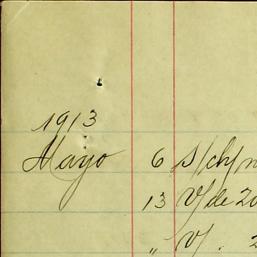 1913
Mayo 6 S/ch/
13 V/de 20
" V/. 2